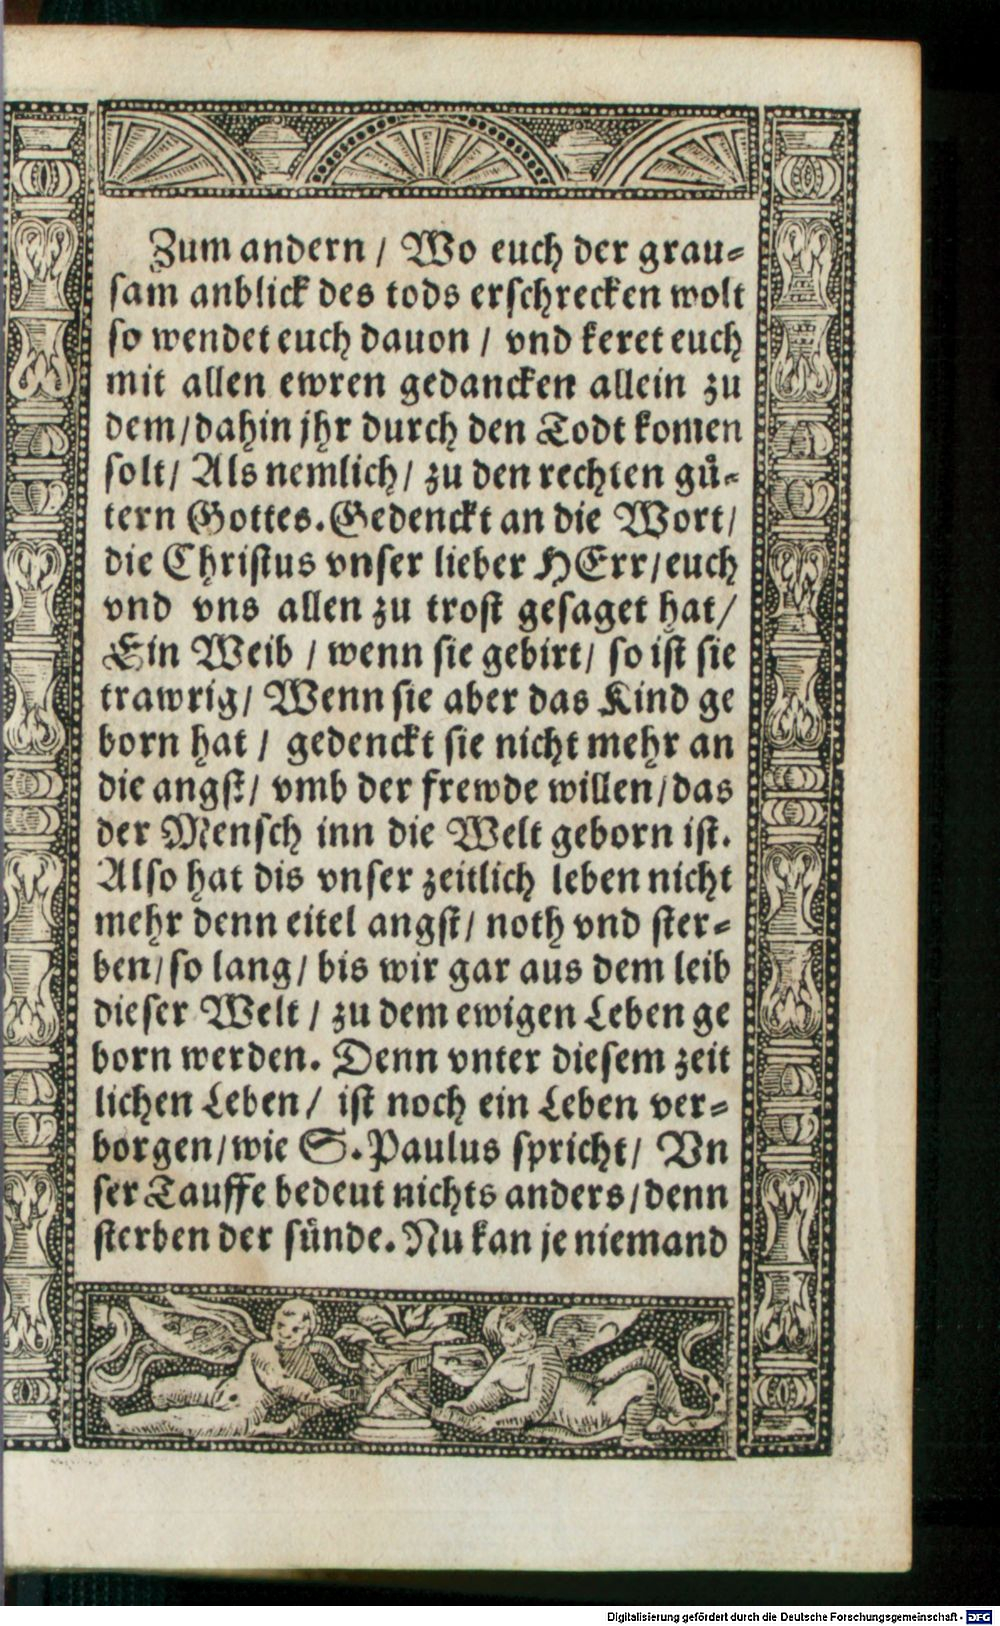 Zum andern / Wo euch der grau-
sam anblick des tods erschrecken wolt
so wendet euch dauon / vnd keret euch
mit allen ewren gedancken allein zu
dem/dahin jhr durch den Todt komen
solt/ Als nemlich/ zu den rechten guͤ-
tern Gottes. Gedenckt an die Wort/
die Christus vnser lieber HErr/euch
vnd vns allen zu trost gesaget hat/
Ein Weib / wenn sie gebirt/ so ist sie
trawrig/ Wenn sie aber das Kind ge
born hat / gedenckt sie nicht mehr an
die angst/ vmb der frewde willen/das
der Mensch inn die Welt geborn ist.
Also hat dis vnser zeitlich leben nicht
mehr denn eitel angst/ noth vnd ster-
ben/so lang/ bis wir gar aus dem leib
dieser Welt / zu dem ewigen Leben ge
born werden. Denn vnter diesem zeit
lichen Leben/ ist noch ein Leben ver-
borgen/wie S. Paulus spricht/ Vn
ser Tauffe bedeut nichts anders/denn
sterben der suͤnde. Nu kan je niemand
Digitalisierung gefördert durch die Deutsche Forschungsgemeinschaft - DFG